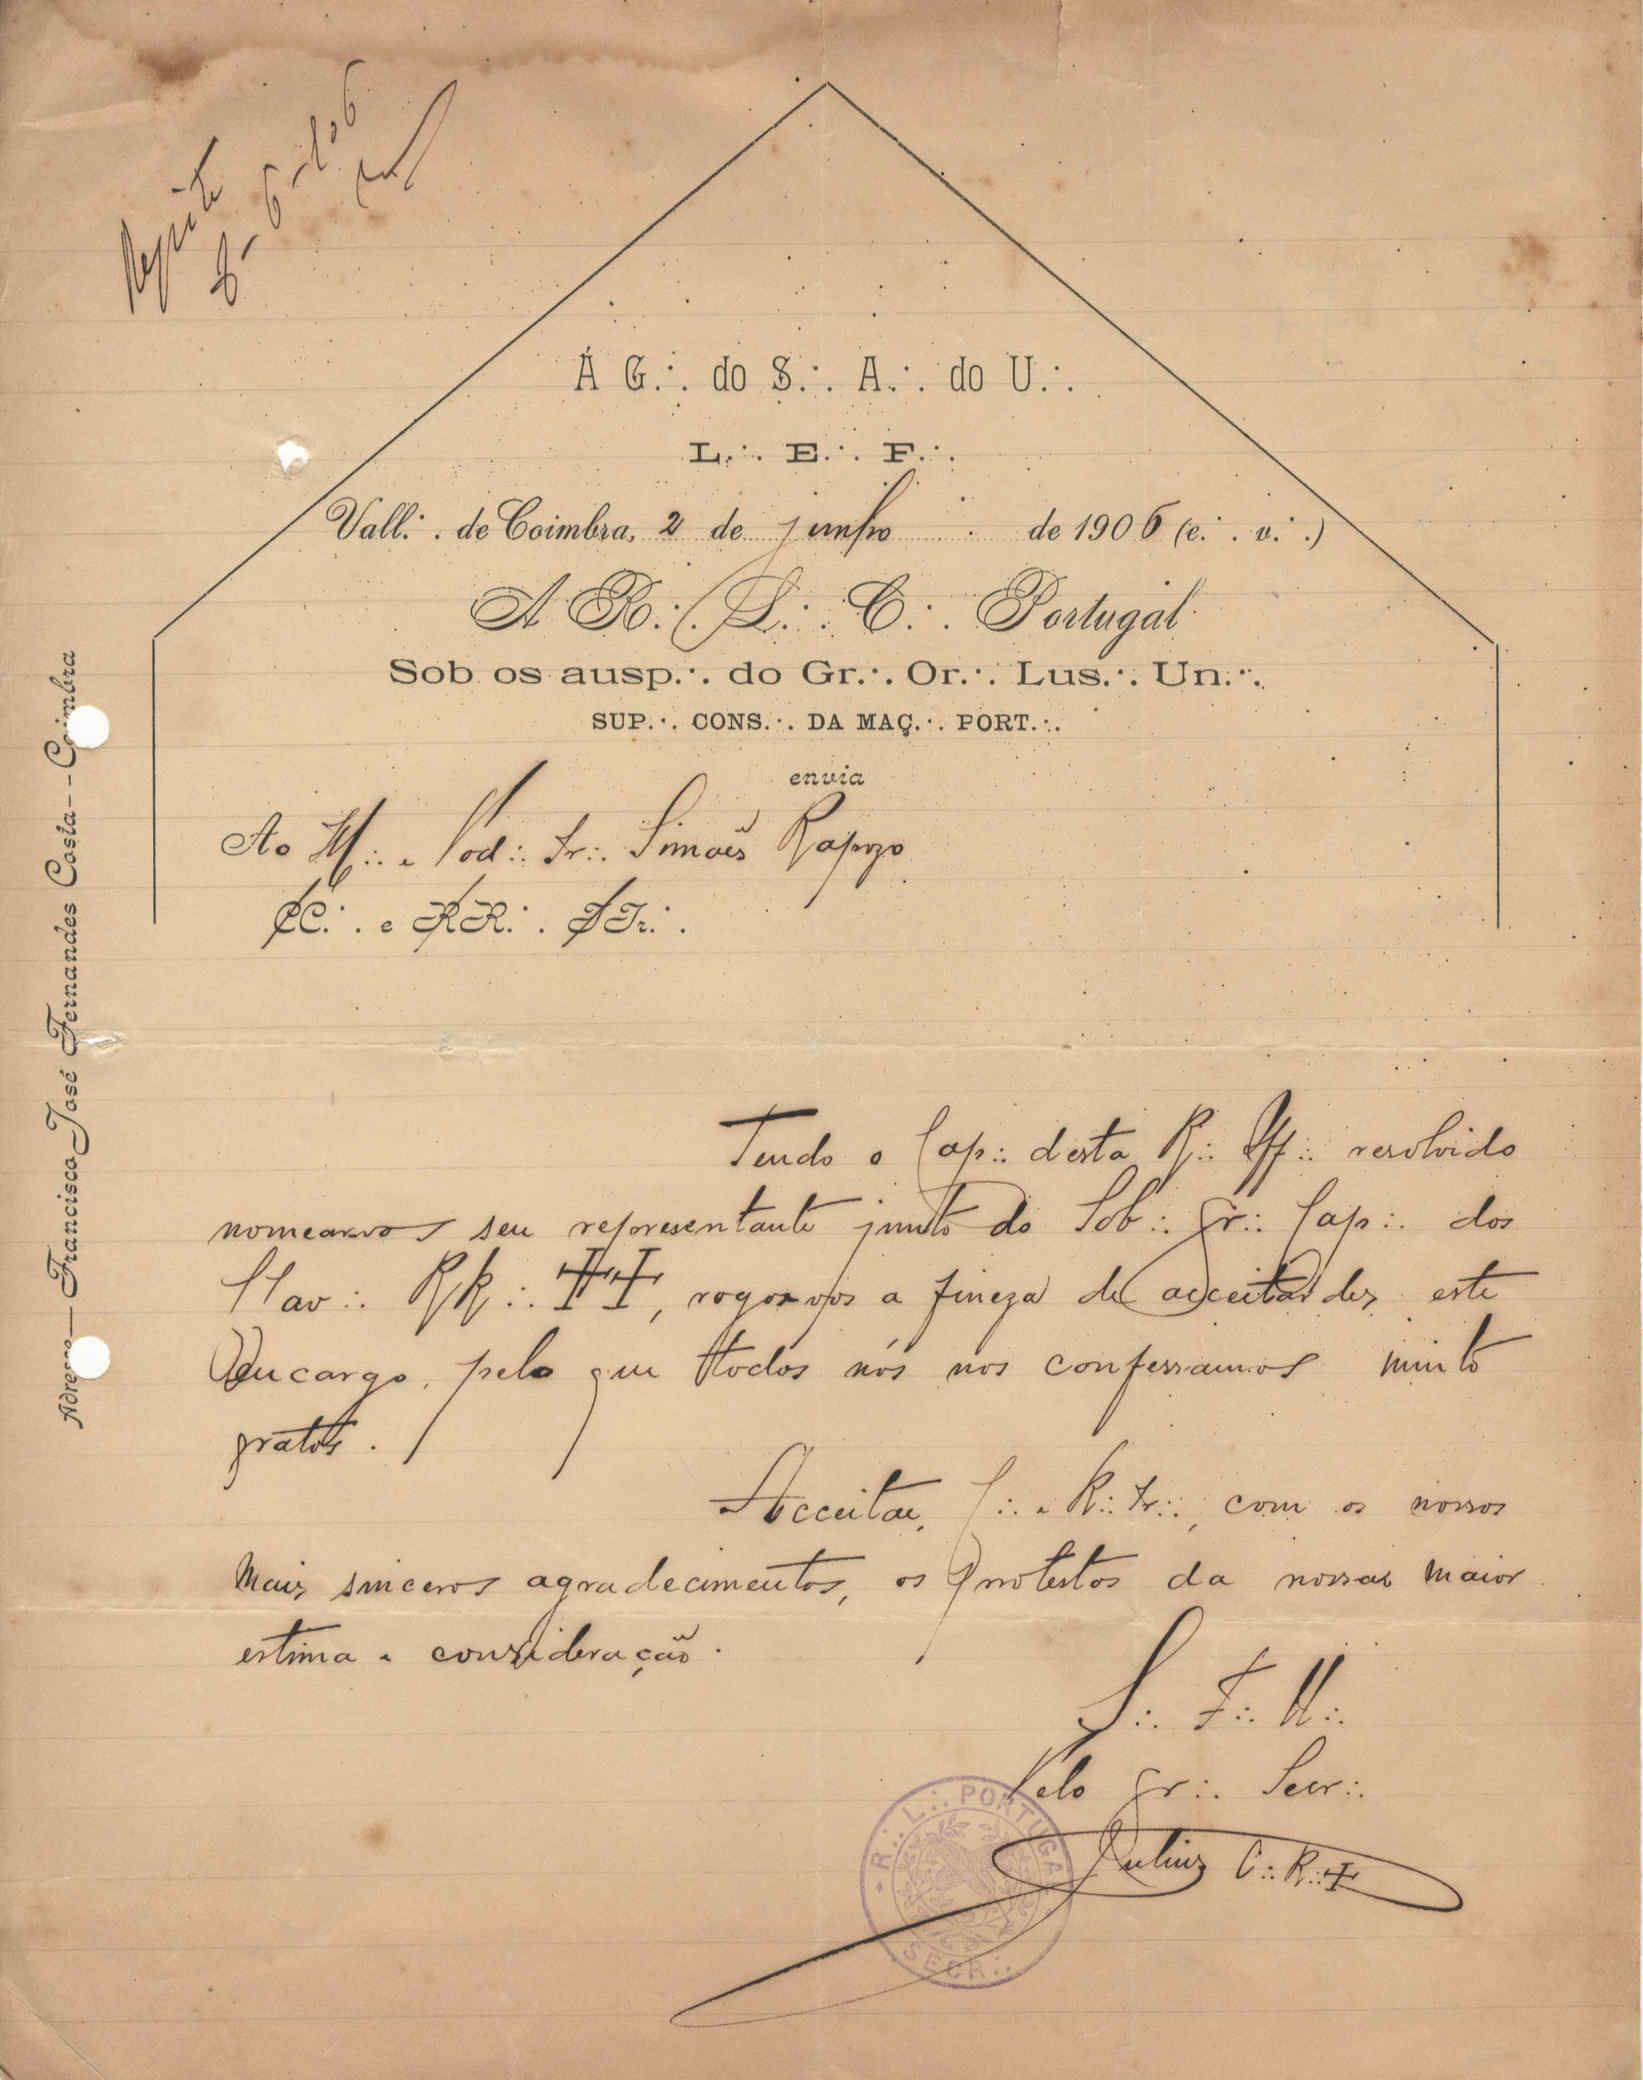 8-6-906
Á G.·. do S.·. A.·. do U.·.
L.·. E.·. F.·.
Vall.·. de Coimbra, 2 de junho de 1906 (e.·. v.·.)
A R.·. L.·. C.·. Portugal
Sob os ausp.·. do Gr.·. Or.·. Lus.·. Un.·.
SUP.·. CONS.·. DA MAÇ.·. PORT.·.
envia
Ao M.·. e Pod.·. Ir.·. Simões Rapozo
CC.·. e RR.·. IIr.·.
Adresse—Francisco José Fernandes Costa--Coimbra
Tendo o Cap.·. desta R.·. Off.·. resolvido
nomear-vos seu representante junto do Sob.·. Gr.·. Cap.·. dos
CCav.·. RR.·. ✝✝, rogo-vos a fineza de acceitardes este
encargo, pelo que todos nós nos confessamos muito
gratos.
Acceitae, C.·. e R.·. Ir.·., com os nossos
mais sinceros agradecimentos, os protestos da nossa maior
estima e consideração.
S.·. F.·. U.·.
Pelo Gr.·. Secr.·.
Julius C.·. R.·. ✝
R.·. L.·. PORTUGAL
SECR.·.